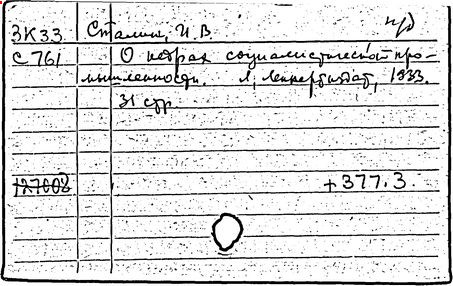 3К33 Сталин, И. В.
С 761 О кадрах социалистической про-
мышленности. Л, Ленпартиздат, 1933.
31 стр
127008
+377.3.